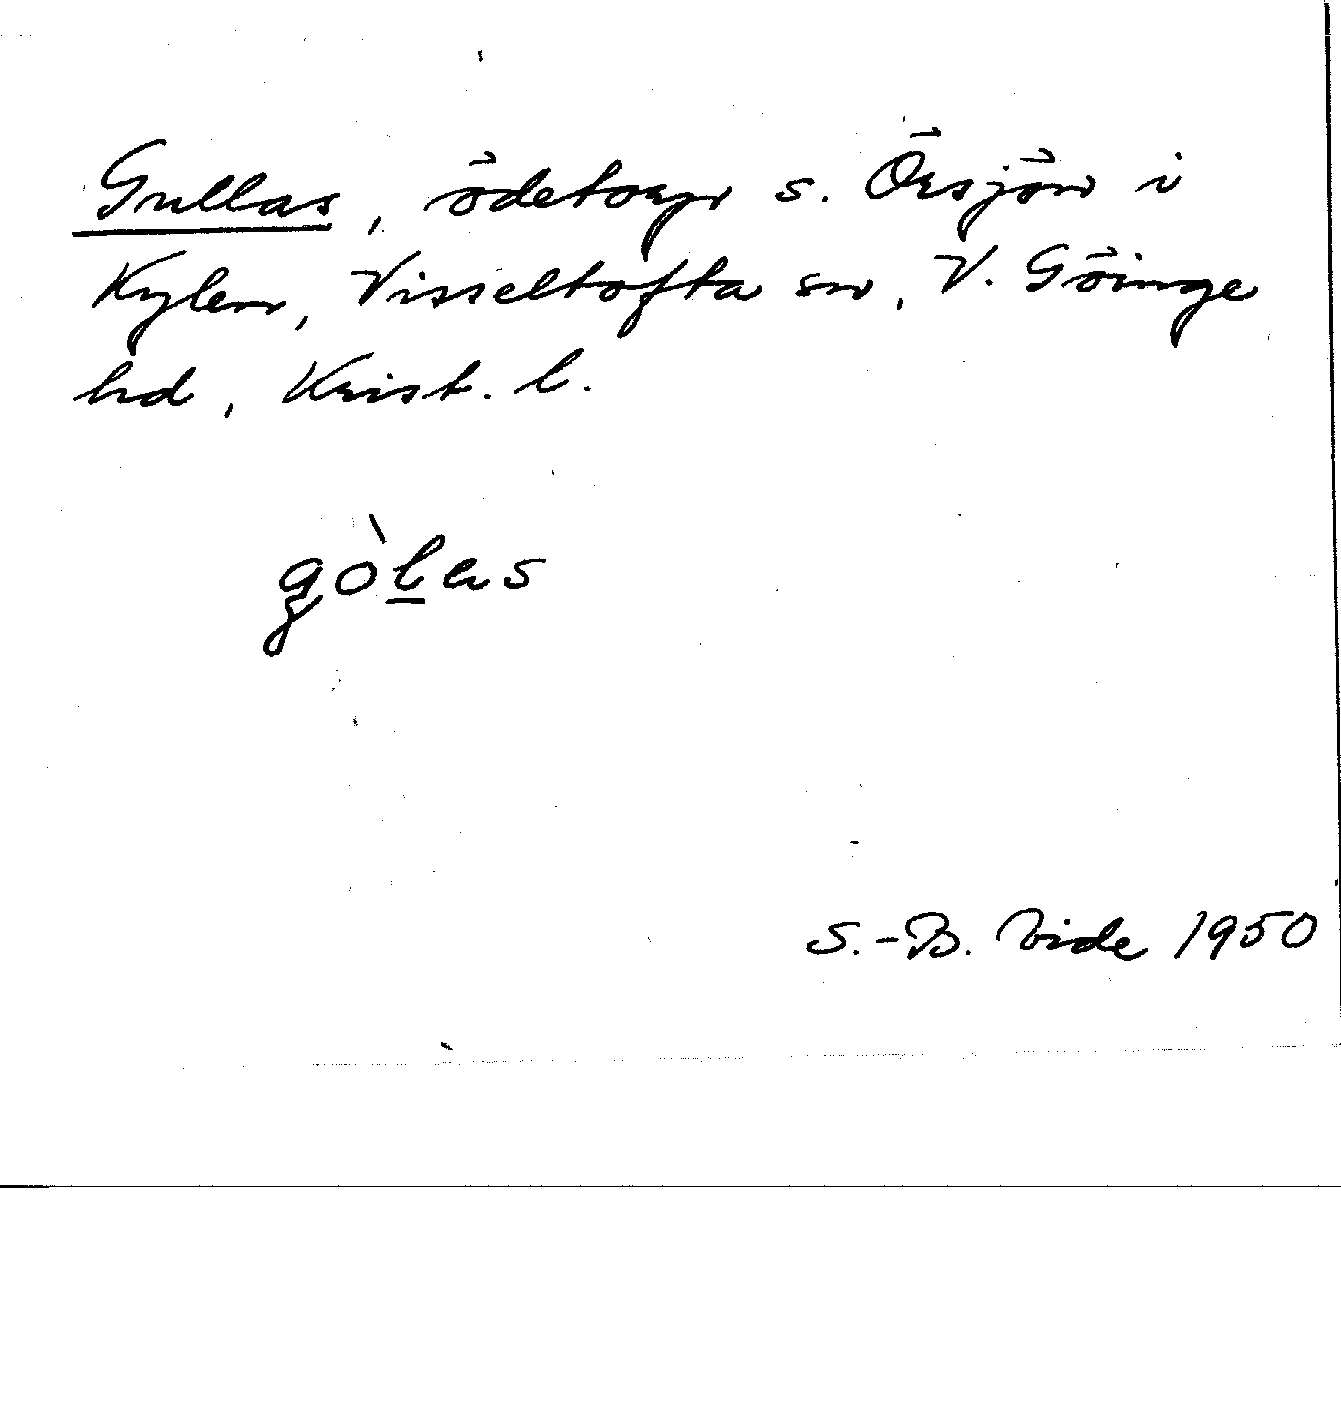 Gullas, ödetorp s. Örsjön i
Kylen, Visseltofta sn, V. Göinge
hd, Krist. l.
gòl̲as
S.-B. Vide 1950